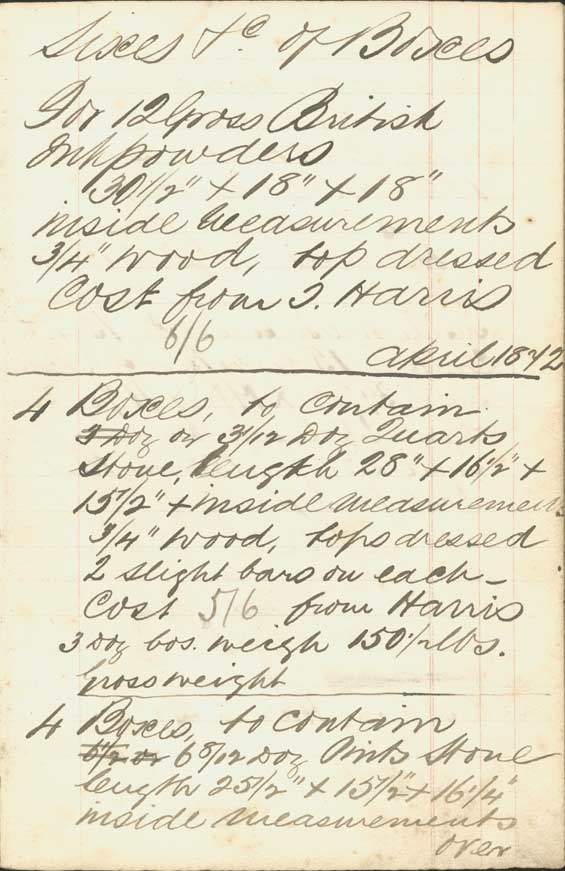 Sizes &c of Boxes
For 12 Gross British
Inkpowders
30 1/2" + 18" + 18"
inside measurements
3/4" wood, top dressed
Cost from J. Harris
6/6
April 1872
4 Boxes, to contain
3 Doz or 3 1/12 Doz Quarts
Stone, length 28" + 16 1/2" +
15 1/2" + inside measurements
3/4" wood, tops dressed
2 slight bars on each -
Cost 5/6 from Harris
3 Doz bos. weigh 150 1/2 lbs.
Gross weight
4 Boxes, to contain
6 1/2 or 6 8/12 Doz Pints Stone
length 25 1/2" + 15 1/2" + 16 1/4"
inside measurements
over